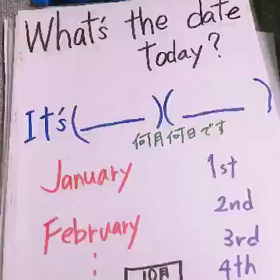 What's the date
today?
It's (______)(______)
何月何日です
January 1st
2nd
February 3rd
4th
10月